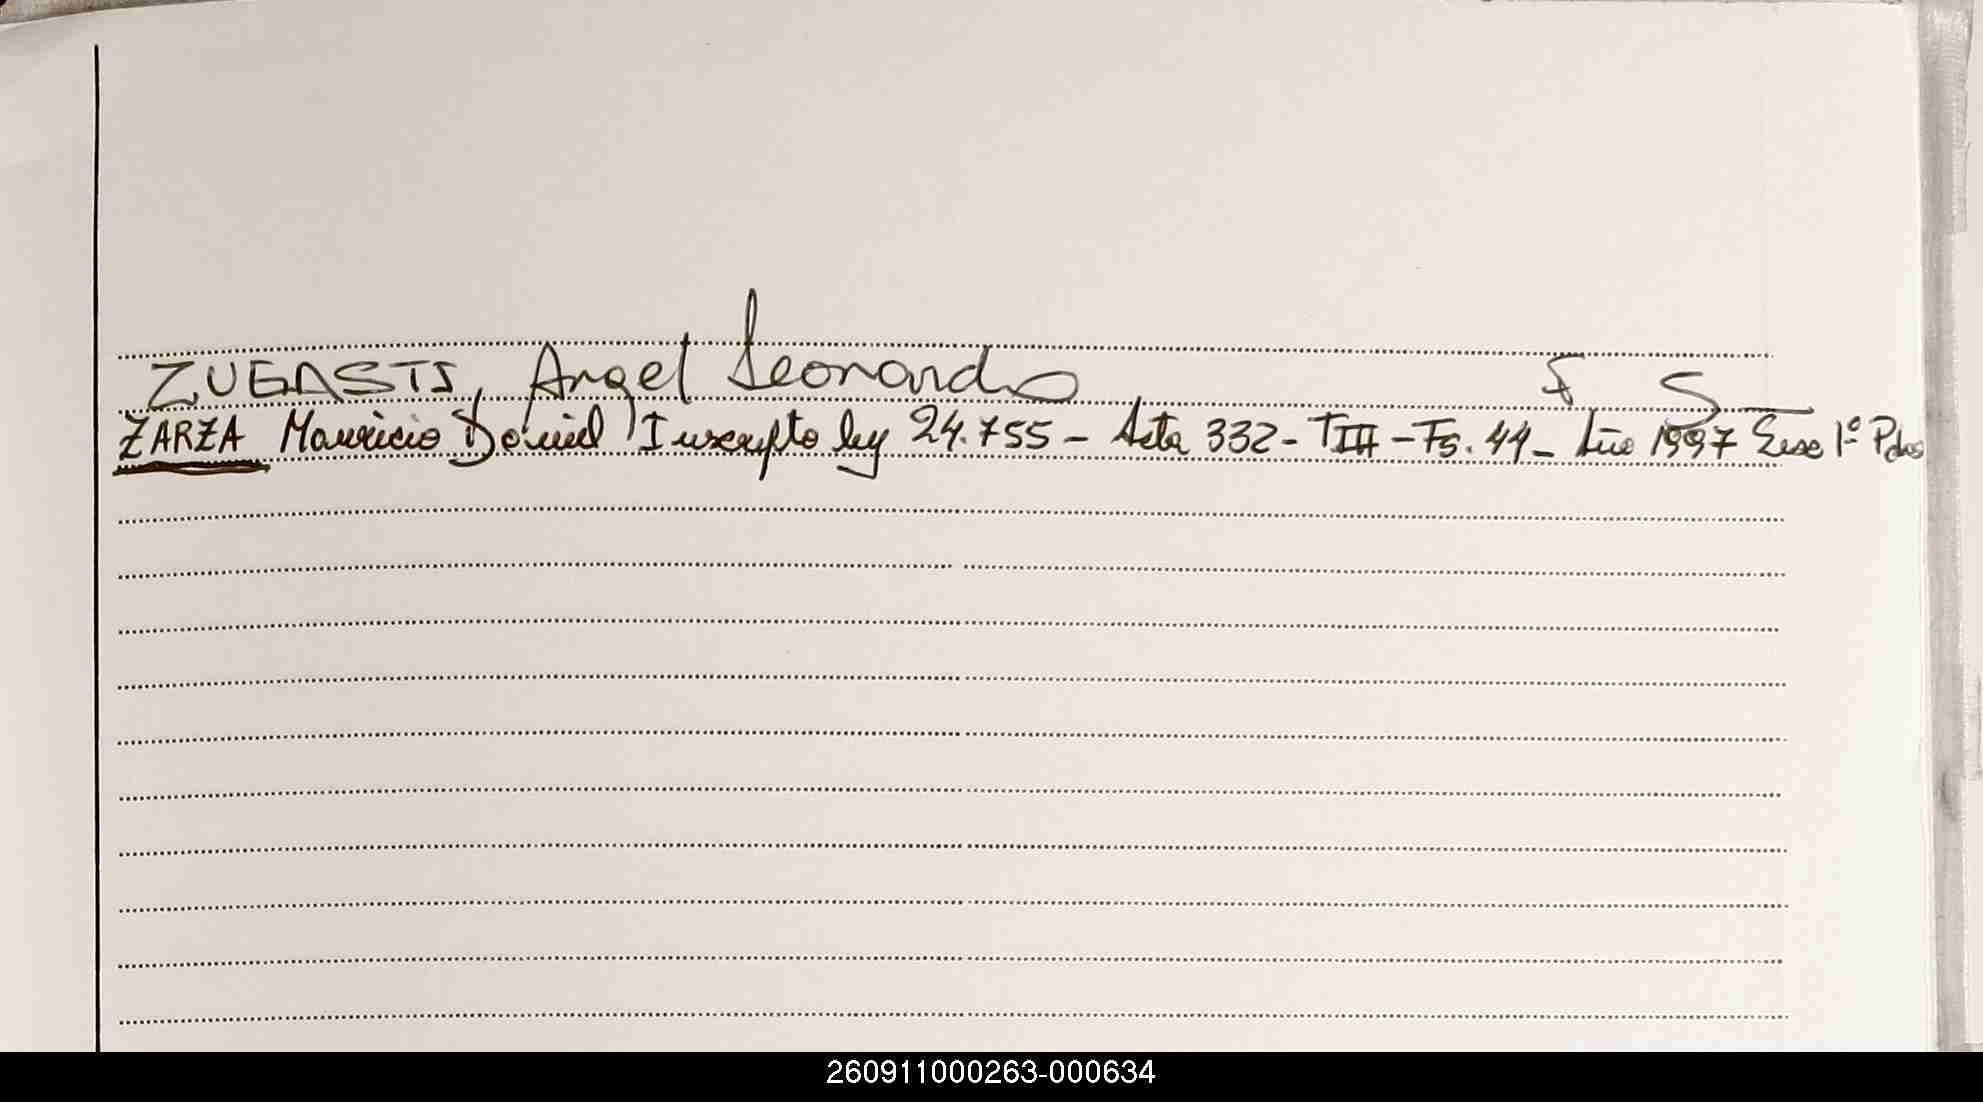 ZUGASTI, Angel Leonardo F 5
ZARZA Mauricio Daniel Inscripto ley 24.755 - Acta 332 - T III - Fs. 44 - Año 1997 Secc 1º Pdos
260911000263-000634